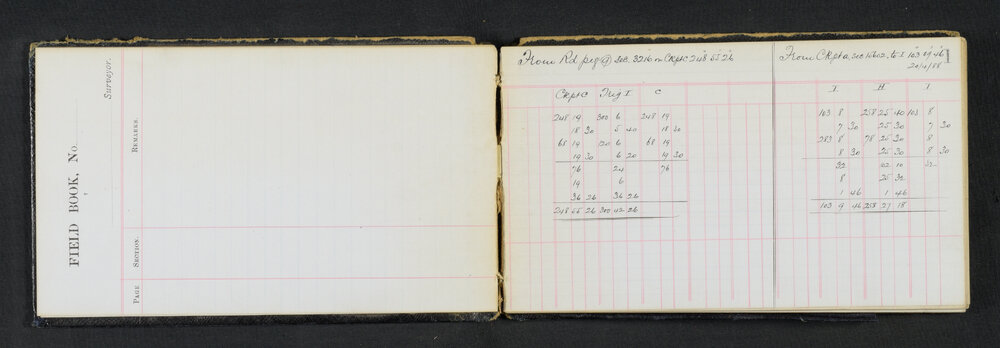 FIELD BOOK, No.
Surveyor.
PAGE SECTION. REMARKS.
From Rd peg @ Sec. 3216 on Ckpt C 248 55 26
Ckpt C Trig I C
248 19 300 6 248 19
18 30 5 40 18 30
68 19 120 6 68 19
19 30 6 20 19 30
76 24 76
19 6
36 26 36 26
248 55 26 300 42 26
From Ckpt a, Sec to I 103 9 46
1
20/10/88
I. H. I
103 8 258 25 40 103 8
7 30 25 30 7 30
283 8 78 25 30 8
8 30 25 30 8 30
32 102 10 32
8 25 32
1 46 1 46
103 9 46 258 27 18